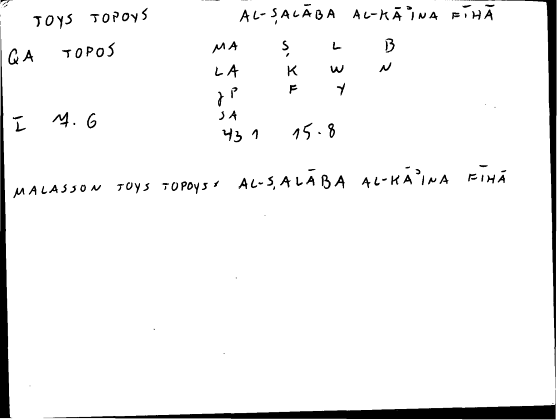 TOYS TOPOYS AL-ṢALĀBA AL-KĀʾINA FĪHĀ
QA TOPOS MA Ṣ L B
LA K W N
P F Y
SA
I 7.6 431 15.8
MALASSON TOYS TOPOYS: AL-ṢALĀBA AL-KĀʾINA FĪHĀ